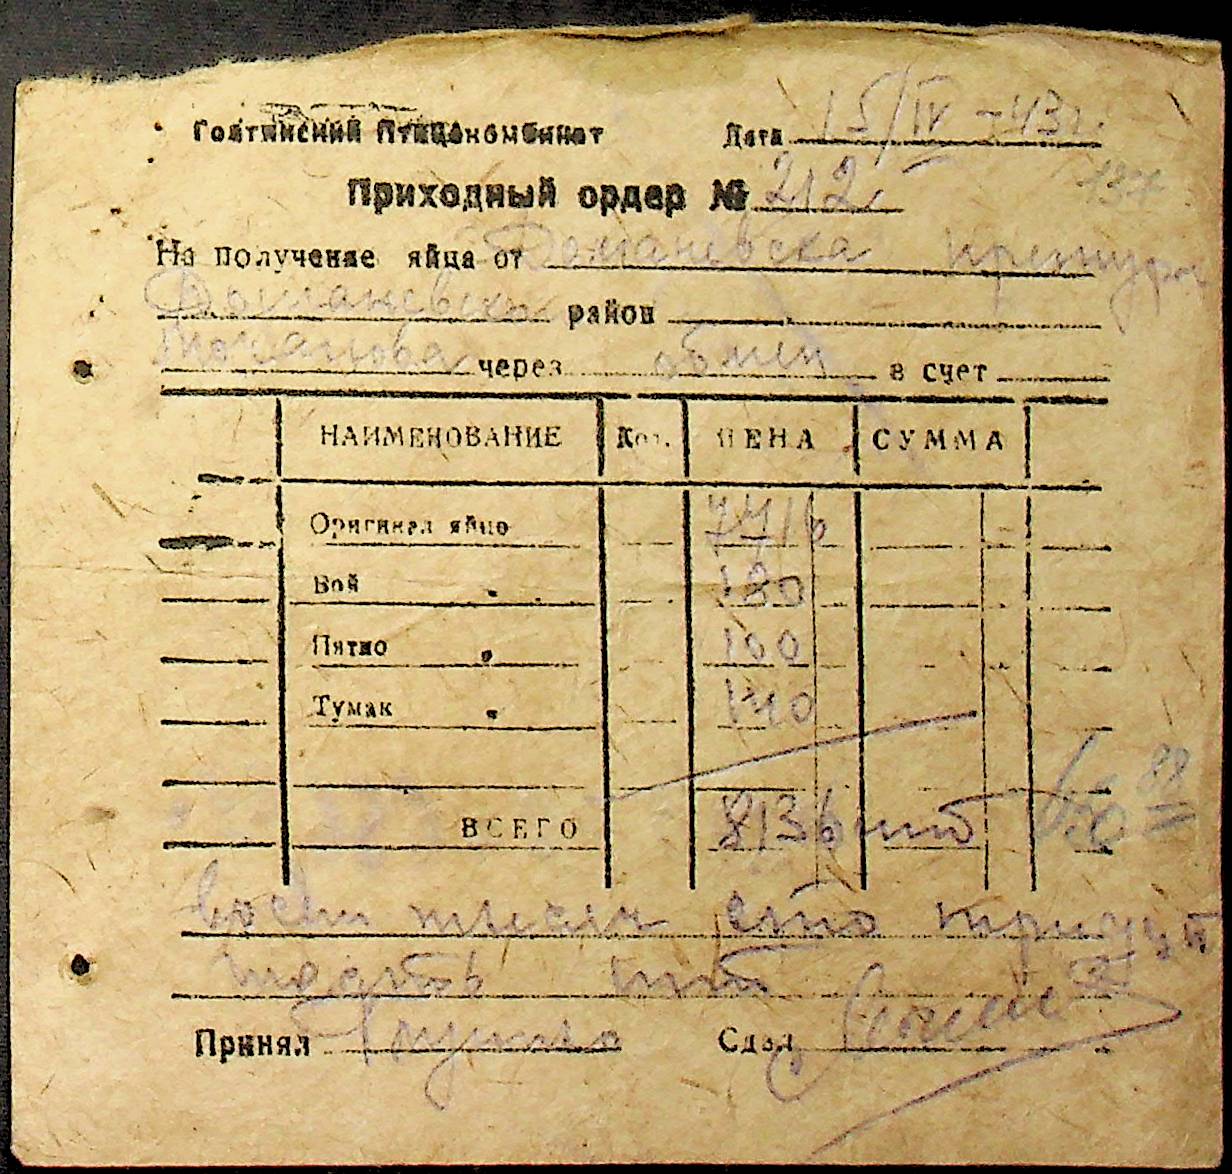 Голтянский Птицекомбинат Дата 15/IV-43г.
Приходный ордер № 212
137
На получение яйца от Доманевска претура
Доманевски район
через обмен в счет
НАИМЕНОВАНИЕ Кол. ЦЕНА СУММА
Оригинал яйцо 7716
Бой " 180
Пятно " 100
Тумак " 140
ВСЕГО 8136 шт
88
восем тысяч сто тридцат
шесть шт
Принял Сдал